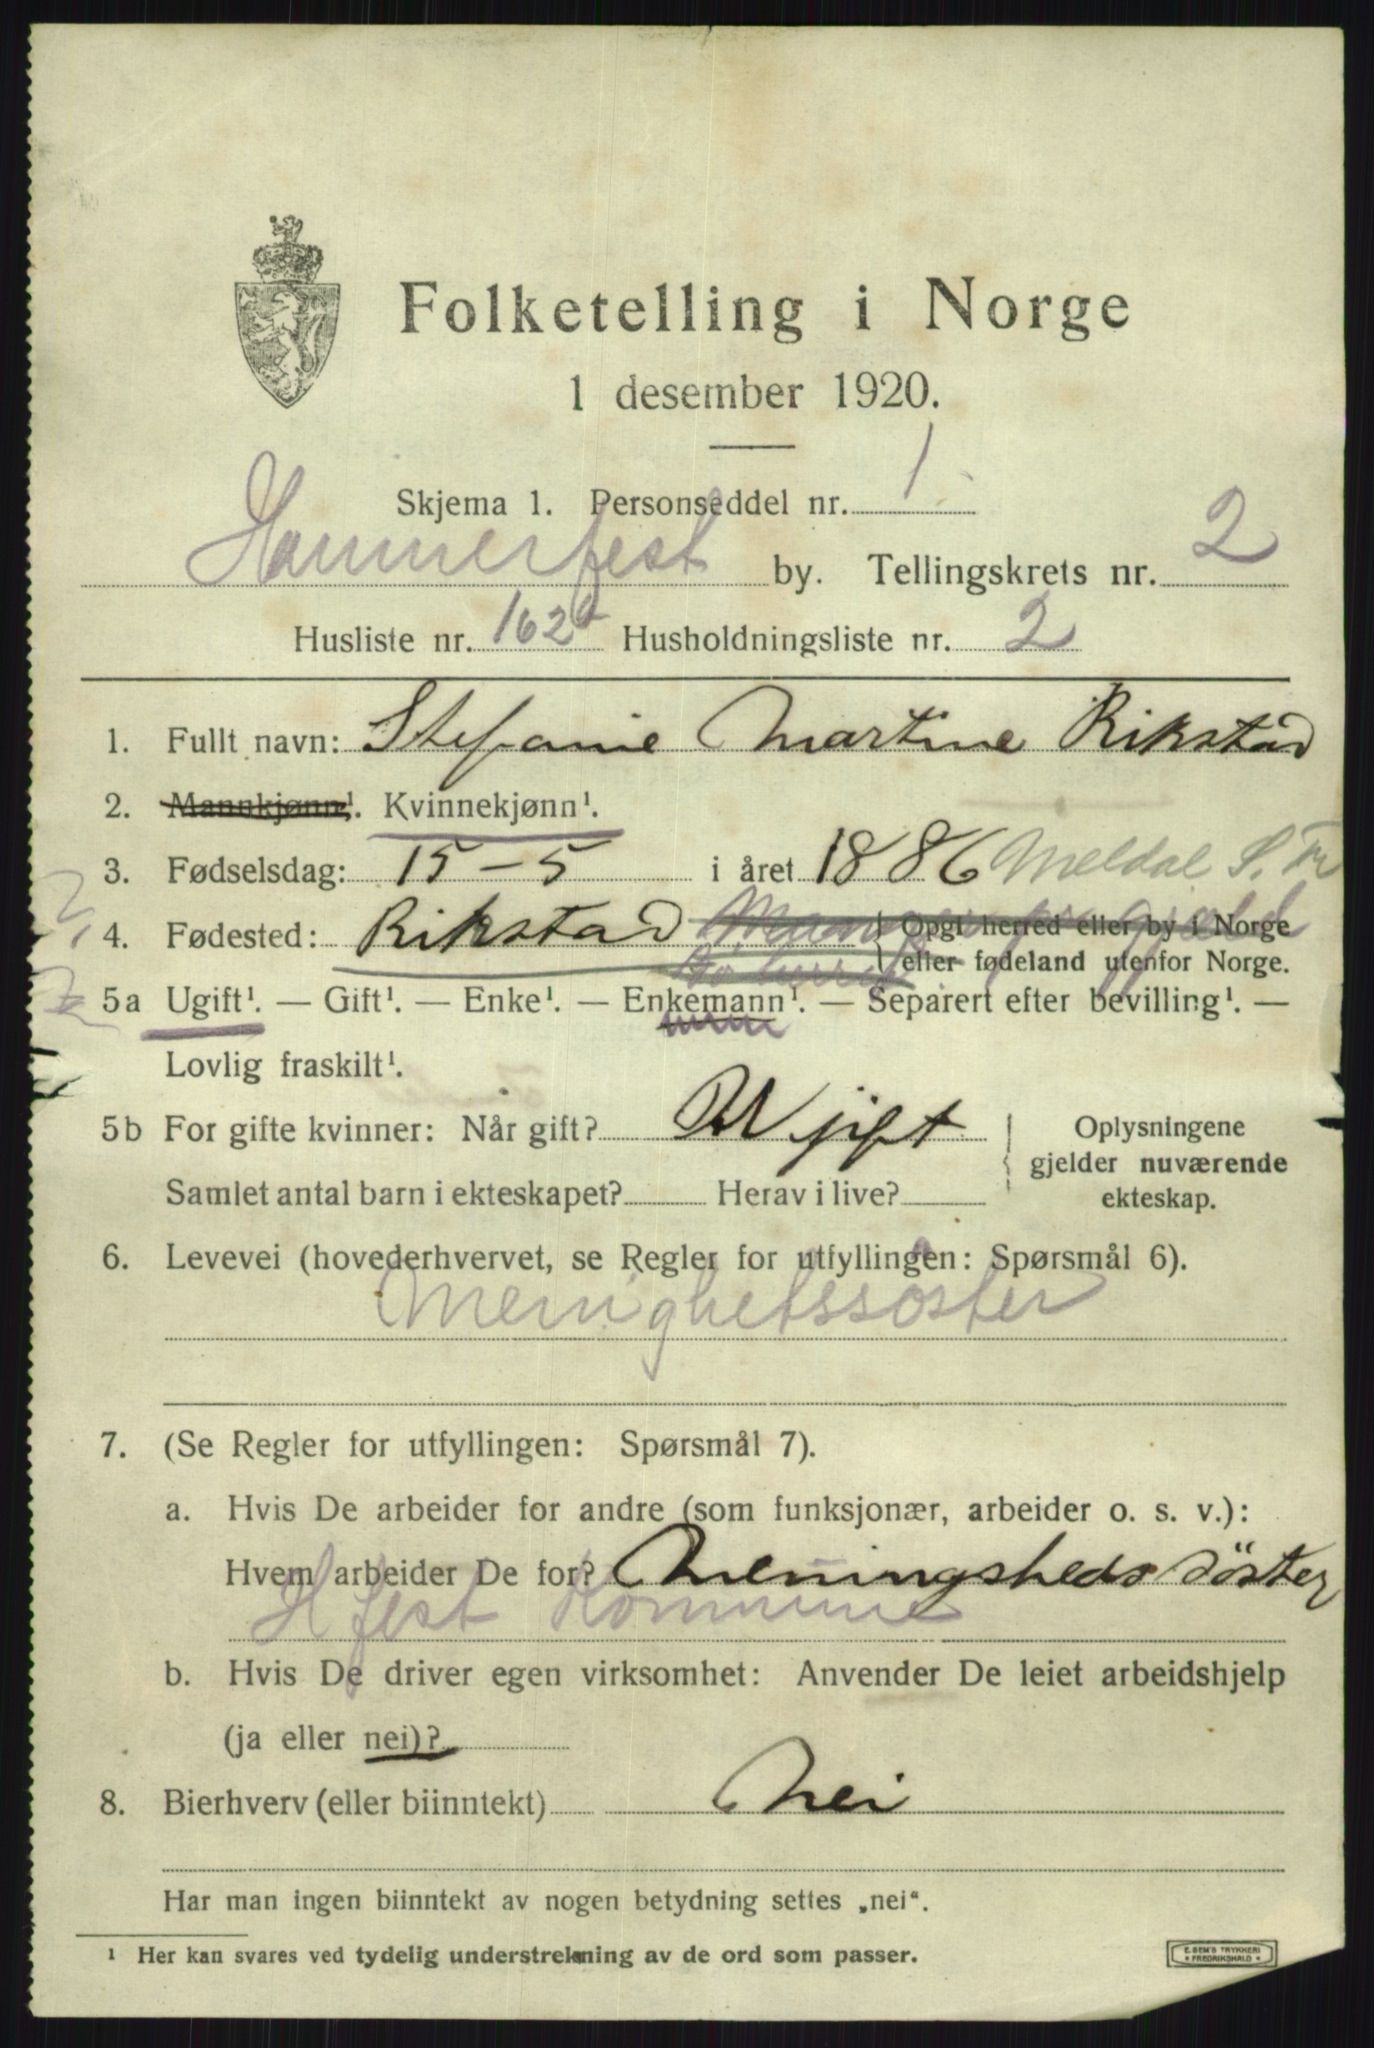 Folketelling i Norge
1 desember 1920.
Skjema 1. Personseddel nr. 1
Hammerfest by. Tellingskrets nr. 2
Husliste nr. 162 Husholdningsliste nr. 2
1. Fullt navn: Stefanie Martine Rikstad
2. Mannkjønn¹. Kvinnekjønn¹.
3. Fødselsdag: 15-5 i året 1886 Meldal S. Tr
4. Fødested: Rikstad } Opgi herred eller by i Norge
eller fødeland utenfor Norge.
5a Ugift¹. — Gift¹. — Enke¹. — Enkemann¹. — Separert efter bevilling¹. —
Lovlig fraskilt¹.
5b For gifte kvinner: Når gift? Ugift { Oplysningene
gjelder nuværende
Samlet antal barn i ekteskapet? Herav i live? ekteskap.
6. Levevei (hovederhvervet, se Regler for utfyllingen: Spørsmål 6).
Menighetssøster
7. (Se Regler for utfyllingen: Spørsmål 7).
a. Hvis De arbeider for andre (som funksjonær, arbeider o. s. v.):
Hvem arbeider De for? Meningsheds söster
Hfest Kommune
b. Hvis De driver egen virksomhet: Anvender De leiet arbeidshjelp
(ja eller nei)?
8. Bierhverv (eller biinntekt) Nei
Har man ingen biinntekt av nogen betydning settes „nei“.
¹ Her kan svares ved tydelig understrekning av de ord som passer.
E. SEM'S TRYKKERI
FREDRIKSHALD